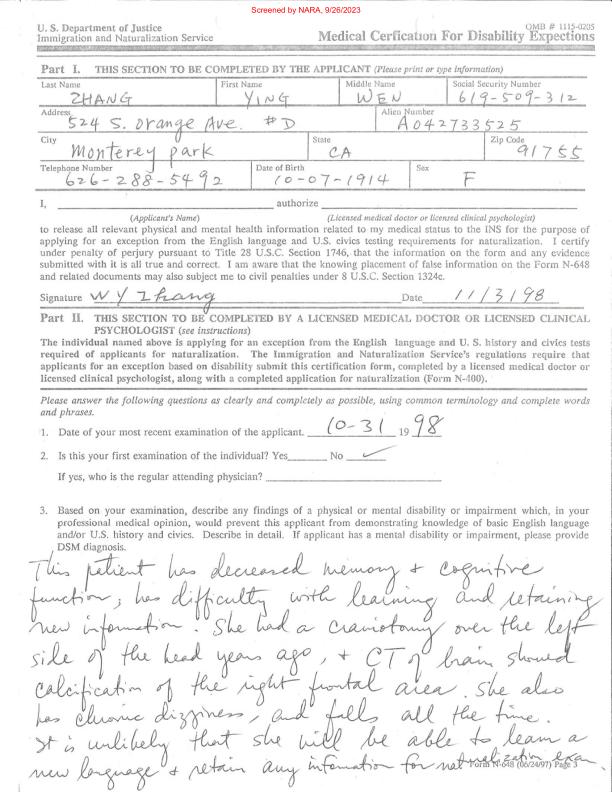 Screened by NARA, 9/26/2023
U. S. Department of Justice
Immigration and Naturalization Service
OMB # 1115-0205
Medical Cerfication For Disability Expections
Part I. THIS SECTION TO BE COMPLETED BY THE APPLICANT (Please print or type information)
Last Name First Name Middle Name Social Security Number
ZHANG YING WEN 619-509-312
Address Alien Number
524 S. Orange Ave. #D A042733525
City State Zip Code
Monterey park CA 91755
Telephone Number Date of Birth Sex
626-288-5492 10-07-1914 F
I, authorize
(Applicant's Name) (Licensed medical doctor or licensed clinical psychologist)
to release all relevant physical and mental health information related to my medical status to the INS for the purpose of
applying for an exception from the English language and U.S. civics testing requirements for naturalization. I certify
under penalty of perjury pursuant to Title 28 U.S.C. Section 1746, that the information on the form and any evidence
submitted with it is all true and correct. I am aware that the knowing placement of false information on the Form N-648
and related documents may also subject me to civil penalties under 8 U.S.C. Section 1324c.
Signature W Y Zhang Date 11/3/98
Part II. THIS SECTION TO BE COMPLETED BY A LICENSED MEDICAL DOCTOR OR LICENSED CLINICAL
PSYCHOLOGIST (see instructions)
The individual named above is applying for an exception from the English language and U. S. history and civics tests
required of applicants for naturalization. The Immigration and Naturalization Service's regulations require that
applicants for an exception based on disability submit this certification form, completed by a licensed medical doctor or
licensed clinical psychologist, along with a completed application for naturalization (Form N-400).
Please answer the following questions as clearly and completely as possible, using common terminology and complete words
and phrases.
1. Date of your most recent examination of the applicant. 10-31 19 98
2. Is this your first examination of the individual? Yes No ✓
If yes, who is the regular attending physician?
3. Based on your examination, describe any findings of a physical or mental disability or impairment which, in your
professional medical opinion, would prevent this applicant from demonstrating knowledge of basic English language
and/or U.S. history and civics. Describe in detail. If applicant has a mental disability or impairment, please provide
DSM diagnosis.
This patient has decreased memory + cognitive
function, has difficulty with learning and retaining
new information. She had a craniotomy over the left
side of the head years ago, + CT of brain showed
calcification of the right frontal area. She also
has chronic dizziness, and falls all the time.
It is unlikely that she will be able to learn a
new language + retain any information for naturalization exam.
Form N-648 (06/24/97) Page 3